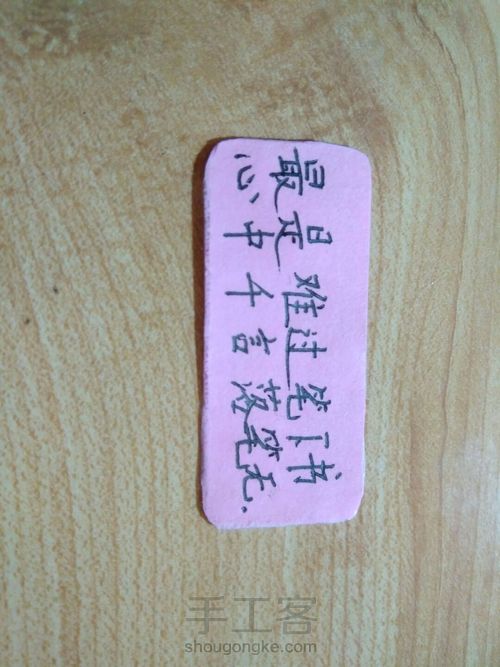 最是难过笔下书
心中千言落笔无.
手工客
shougongke.com